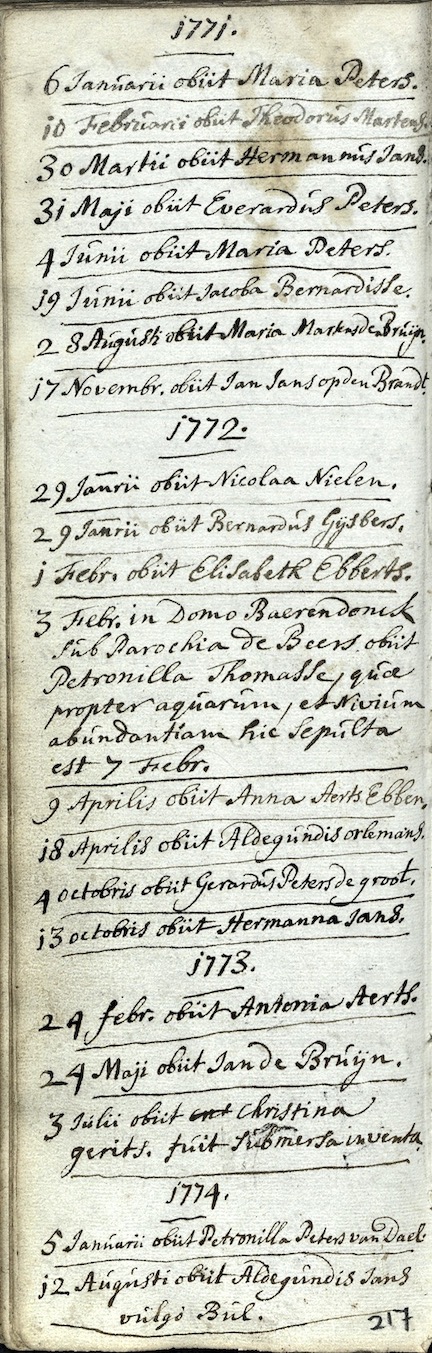 1771.
6 Januarii obiit Maria Peters.
10 Februarii obiit Theodorus Martens.
30 Martii obiit Hermannus Jans.
31 Maji obiit Everardus Peters.
4 Junii obiit Maria Peters.
19 Junii obiit Jacoba Bernardisse.
28 Augusti obiit Maria Martens de Bruijn.
17 Novembr. obiit Jan Jans op den Brandt.
1772.
29 Jan̄rii obiit Nicolaa Nielen.
29 Jan̄rii obiit Bernardus Gijsbers.
1 Febr. obiit Elisabeth Ebberts.
3 Febr. in Domo Baerendonck
sub Parochia de Beers obiit
Petronilla Thomasse, quae
propter aquarum, et Nivium
abundantiam hic sepulta
est 7 Febr.
9 Aprilis obiit Anna Aerts Ebben.
18 Aprilis obiit Aldegundis orlemans.
4 octobris obiit Gerardus Peters de groot.
13 octobris obiit Hermanna Jans.
1773.
24 febr. obiit Antonia Aerts.
24 Maji obiit Jan de Bruijn.
3 Julii obiit Christina
gerits. fuit submersa inventa
1774.
5 Januarii obiit Petronilla Peters van Dael
12 Augusti obiit Aldegundis Jans
vulgo Bul.
217